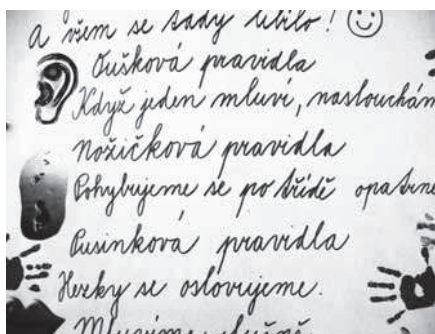 A všem se tady líbilo!
Oušková pravidla
Když jeden mluví, naslouchám
Nožičková pravidla
Pohybujeme se po třídě opatrně
Pusinková pravidla
Hezky se oslovujeme.
Mluvíme slušně